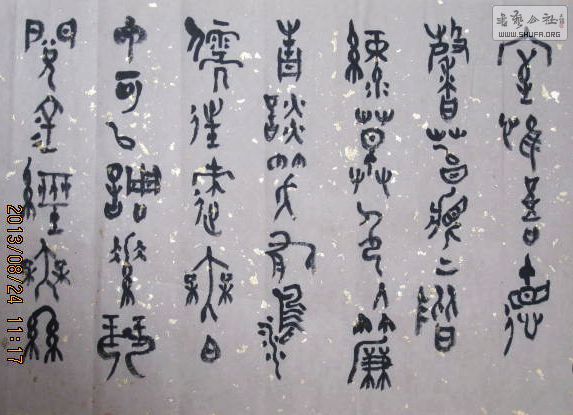 室惟吾德
馨苔痕上階
綠草色入簾
青談笑有鴻
儒往來無白
丁可以調素琴
閱金經無絲
书艺公社
WWW.SHUFA.ORG
2013/08/24 11:17